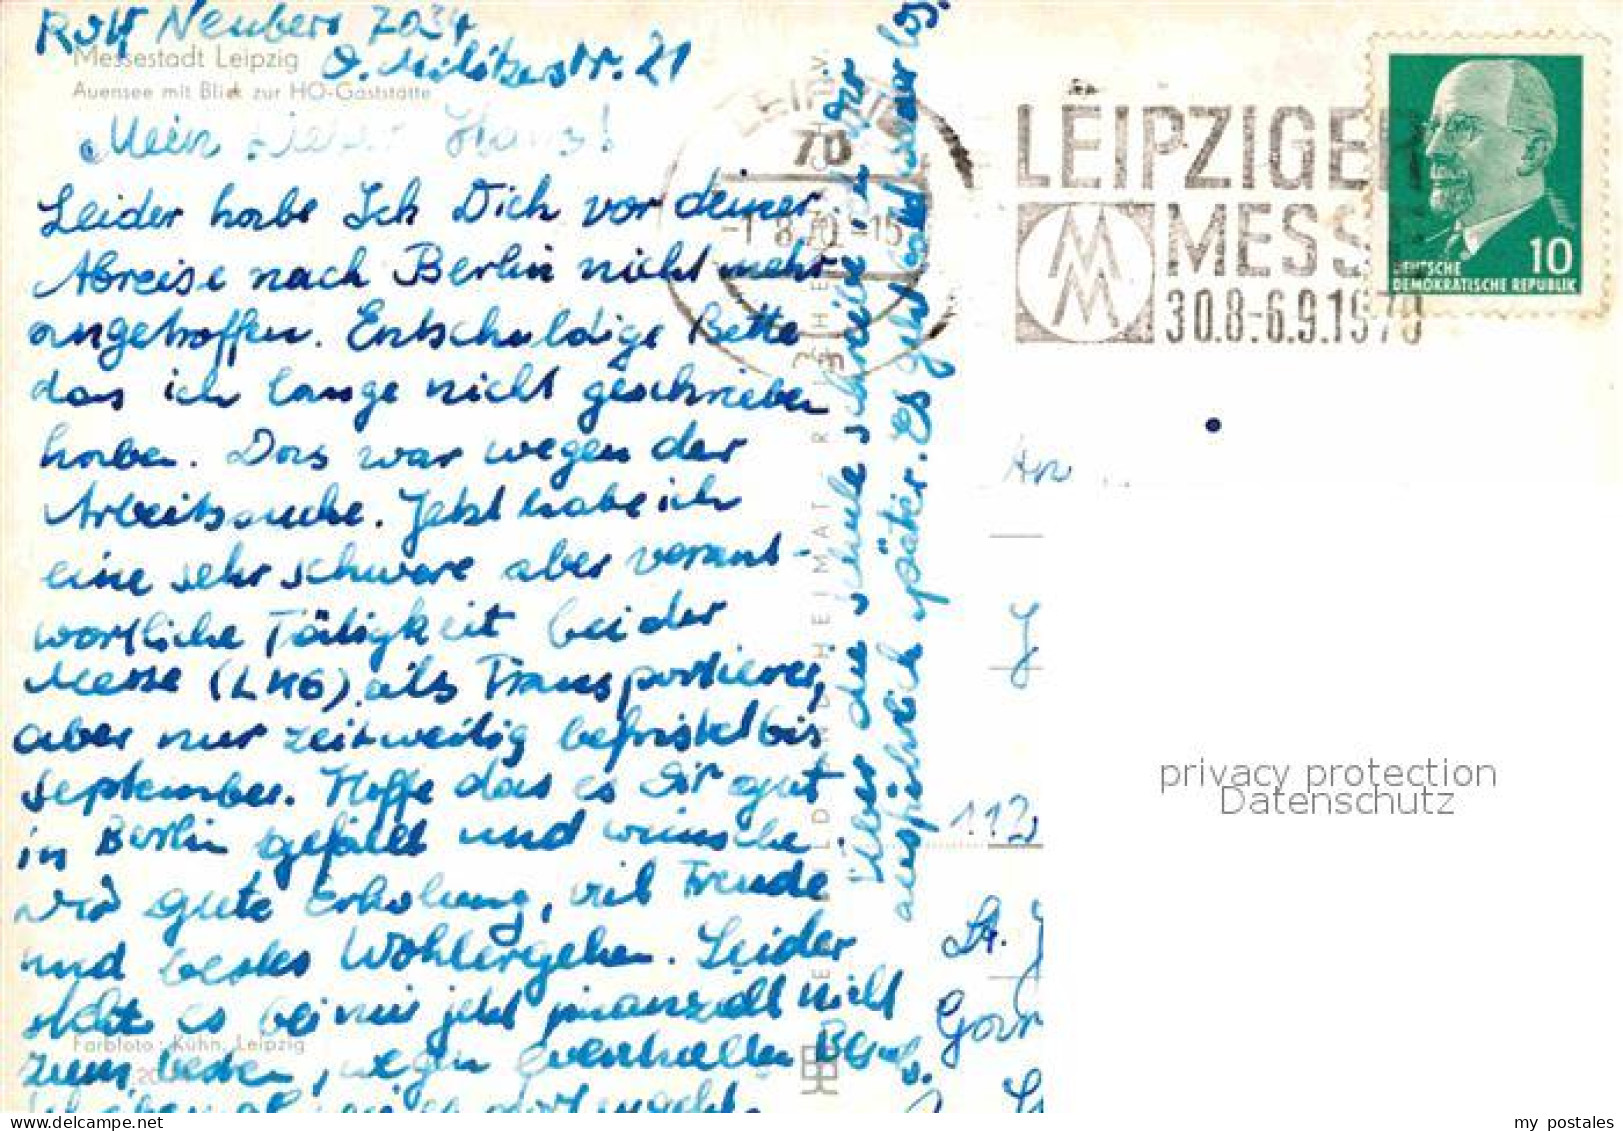 Rolf Neubert 7034
O. Militzerstr. 21
Messestadt Leipzig
Auensee mit Blick zur HO-Gaststätte
Mein lieber Hans!
Leider habe Ich Dich vor deiner
Abreise nach Berlin nicht mehr
angetroffen. Entschuldige Bitte
das ich lange nicht geschrieben
haben. Das war wegen der
Arbeitssuche. Jetzt habe ich
eine sehr schwere aber verant-
wortliche Tätigkeit bei der
Messe (LMG) als Transportierer,
aber nur zeitweilig befristet bis
September. Hoffe das es Dir gut
in Berlin gefällt und wünsche
Dir gute Erholung, viel Freude
und bestes Wohlergehen. Leider
steht es bei mir jetzt finanziell nicht
zum besten, wegen eventuellen
Farbfoto: Kühn, Leipzig
Über die Schule schreibe ich Dir
ausführlich später. Es geht bald wieder los.
LEIPZIG
70
-1.8.70-15
LEIPZIGER
MESSE
30.8.-6.9.1970
10
DEUTSCHE
DEMOKRATISCHE REPUBLIK
An
J
112
St.
privacy protection
Datenschutz
my postales